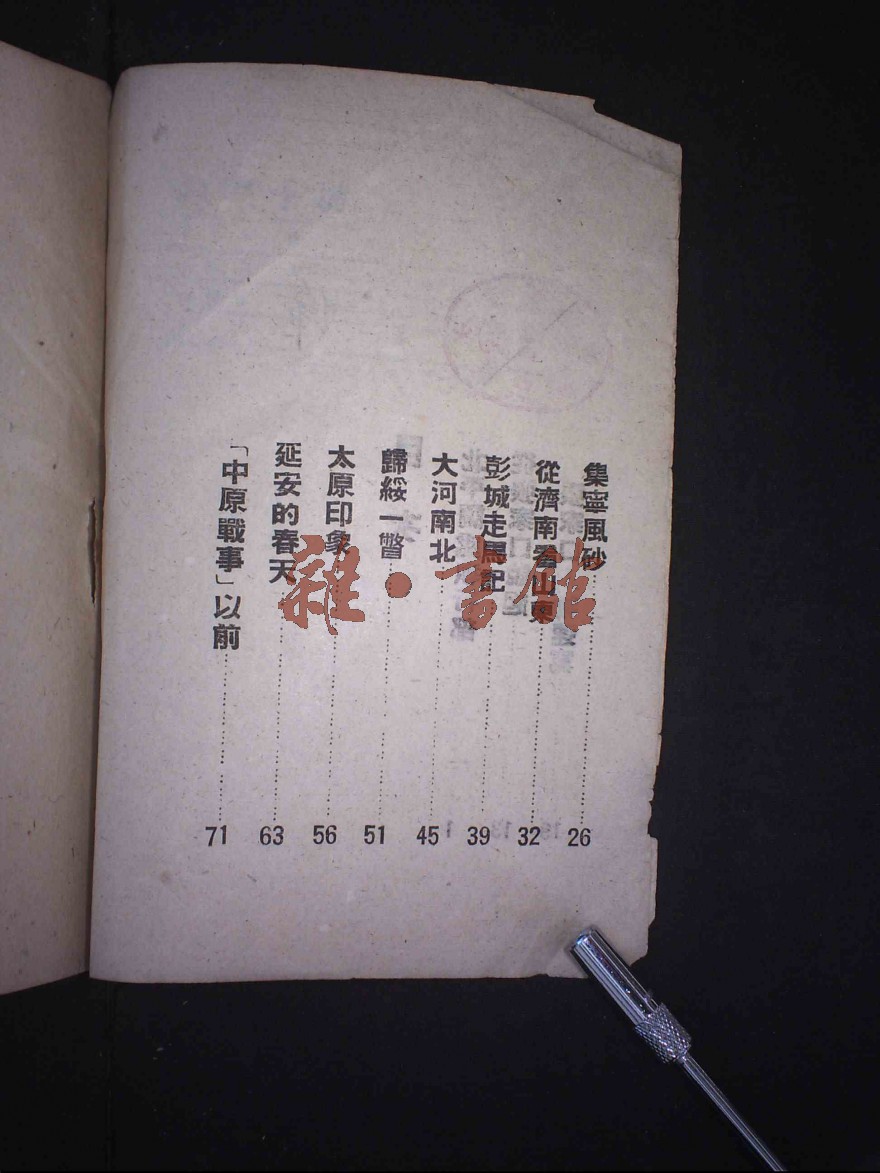 集寧風砂 26
從濟南看山東 32
彭城走馬記 39
大河南北 45
歸綏一瞥 51
太原印象 56
延安的春天 63
「中原戰事」以前 71
雜·書館